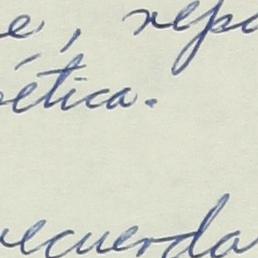 e, repo
ética.
recuerda